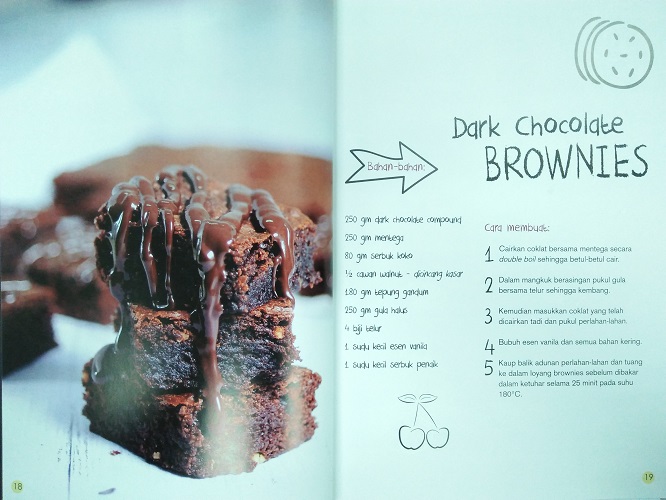 Dark Chocolate
BROWNIES
Bahan-bahan:
250 gm dark chocolate compound
250 gm mentega
80 gm serbuk koko
½ cawan walnut - dicincang kasar
180 gm tepung gandum
250 gm gula halus
4 biji telur
1 sudu kecil esen vanila
1 sudu kecil serbuk penaik
Cara membuat:
1 Cairkan coklat bersama mentega secara
double boil sehingga betul-betul cair.
2 Dalam mangkuk berasingan pukul gula
bersama telur sehingga kembang.
3 Kemudian masukkan coklat yang telah
dicairkan tadi dan pukul perlahan-lahan.
4 Bubuh esen vanila dan semua bahan kering.
5 Kaup balik adunan perlahan-lahan dan tuang
ke dalam loyang brownies sebelum dibakar
dalam ketuhar selama 25 minit pada suhu
180°C.
18
19